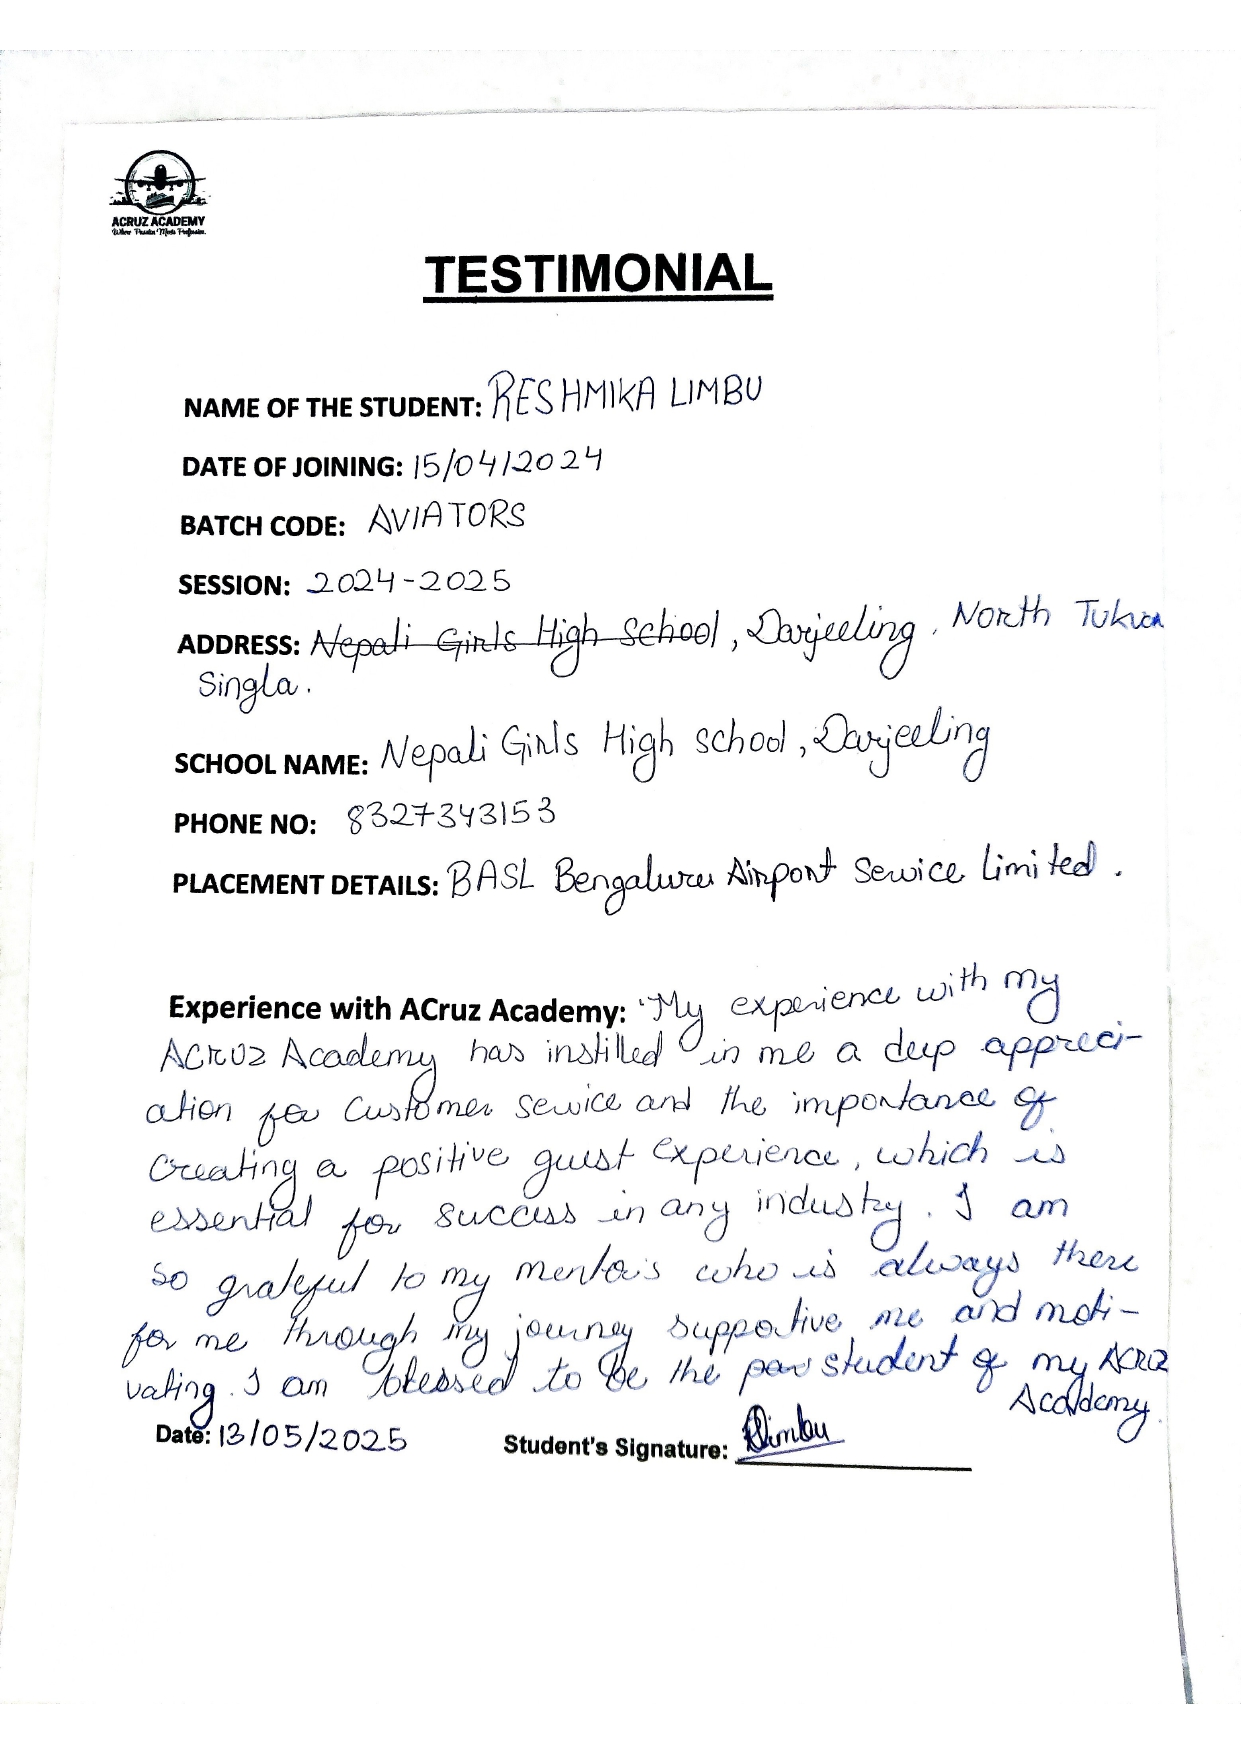 ACRUZ ACADEMY
Where Passion Meets Profession.
TESTIMONIAL
NAME OF THE STUDENT: RESHMIKA LIMBU
DATE OF JOINING: 15/04/2024
BATCH CODE: AVIATORS
SESSION: 2024-2025
ADDRESS: Nepali Girls High School, Darjeeling, North Tukvar
Singla.
SCHOOL NAME: Nepali Girls High school, Darjeeling
PHONE NO: 8327343153
PLACEMENT DETAILS: BASL Bengaluru Airport Service Limited.
Experience with ACruz Academy: "My experience with my
ACRUZ Academy has instilled in me a deep appreci-
ation for customer service and the importance of
creating a positive guest experience, which is
essential for success in any industry. I am
so grateful to my mentors who is always there
for me through my journey supportive me and moti-
vating. I am blessed to be the student of my ACRUZ
Academy.
Date: 13/05/2025 Student's Signature: RLimbu